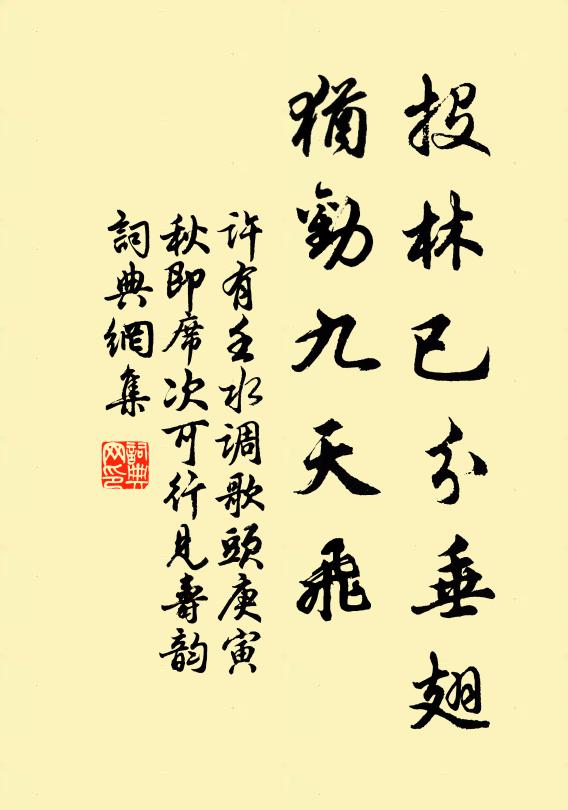 投林已分垂翅
猶勸九天飛
許有壬水调歌頭庚寅
秋即席次可行見壽韵
詞典網集
詞典
网印